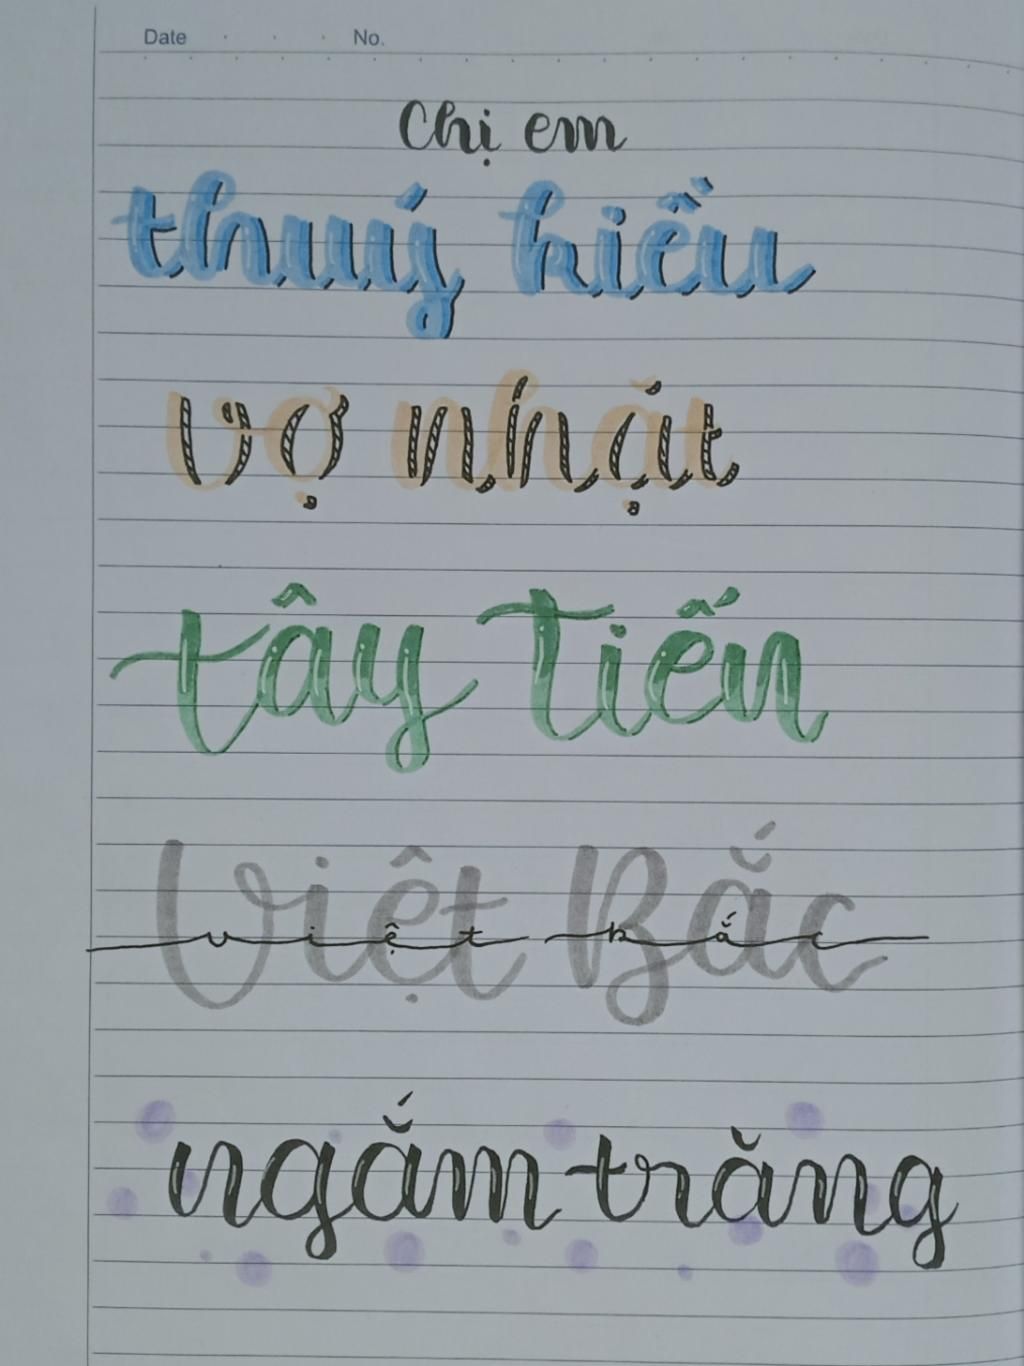 Date No.
Chị em
thuý kiều
vợ nhặt
tây Tiến
Việt Bắc
việt bắc
ngắm trăng